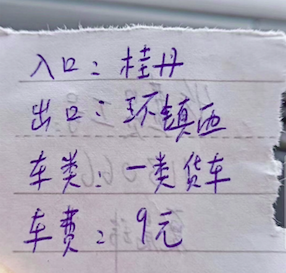 入口：桂丹
出口：环镇西
车类：一类货车
车费：9元